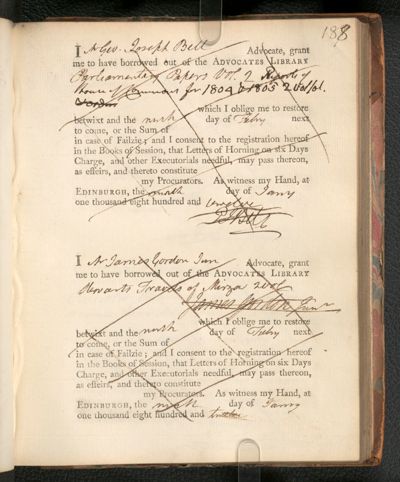 188
I Mr Geo. Joseph Bell Advocate, grant
me to have borrowed out of the ADVOCATES LIBRARY
Parliamentary Papers Vol. 2 Reports of
House of Commons for 1804 & 1805 2 Vol. fol.
London
which I oblige me to restore
betwixt and the ninth day of Febry next
to come, or the Sum of
in case of Failzie; and I consent to the registration hereof
in the Books of Session, that Letters of Horning on six Days
Charge, and other Executorials needful, may pass thereon,
as effeirs, and thereto constitute
my Procurators. As witness my Hand, at
EDINBURGH, the ninth day of Janry
one thousand eight hundred and twelve
Bell
I Mr James Gordon Junr Advocate, grant
me to have borrowed out of the ADVOCATES LIBRARY
Travels of Mirza 2 vol
James Gordon Junr
which I oblige me to restore
betwixt and the ninth day of Febry next
to come, or the Sum of
in case of Failzie; and I consent to the registration hereof
in the Books of Session, that Letters of Horning on six Days
Charge, and other Executorials needful, may pass thereon,
as effeirs, and thereto constitute
my Procurators. As witness my Hand, at
EDINBURGH, the ninth day of Janry
one thousand eight hundred and twelve